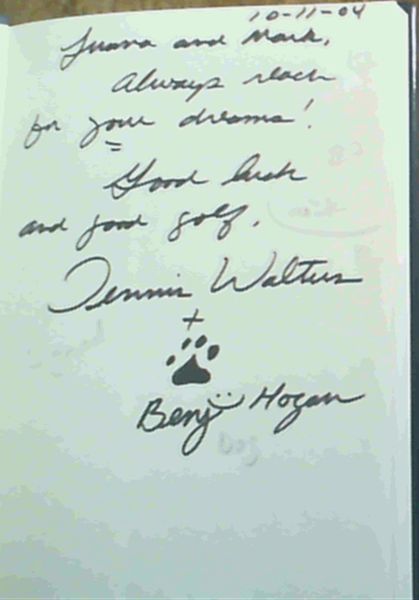 10-11-04
Luana and Mark,
Always reach
for your dreams!
Good luck
and good golf,
Dennis Walters
+
Benji Hogan